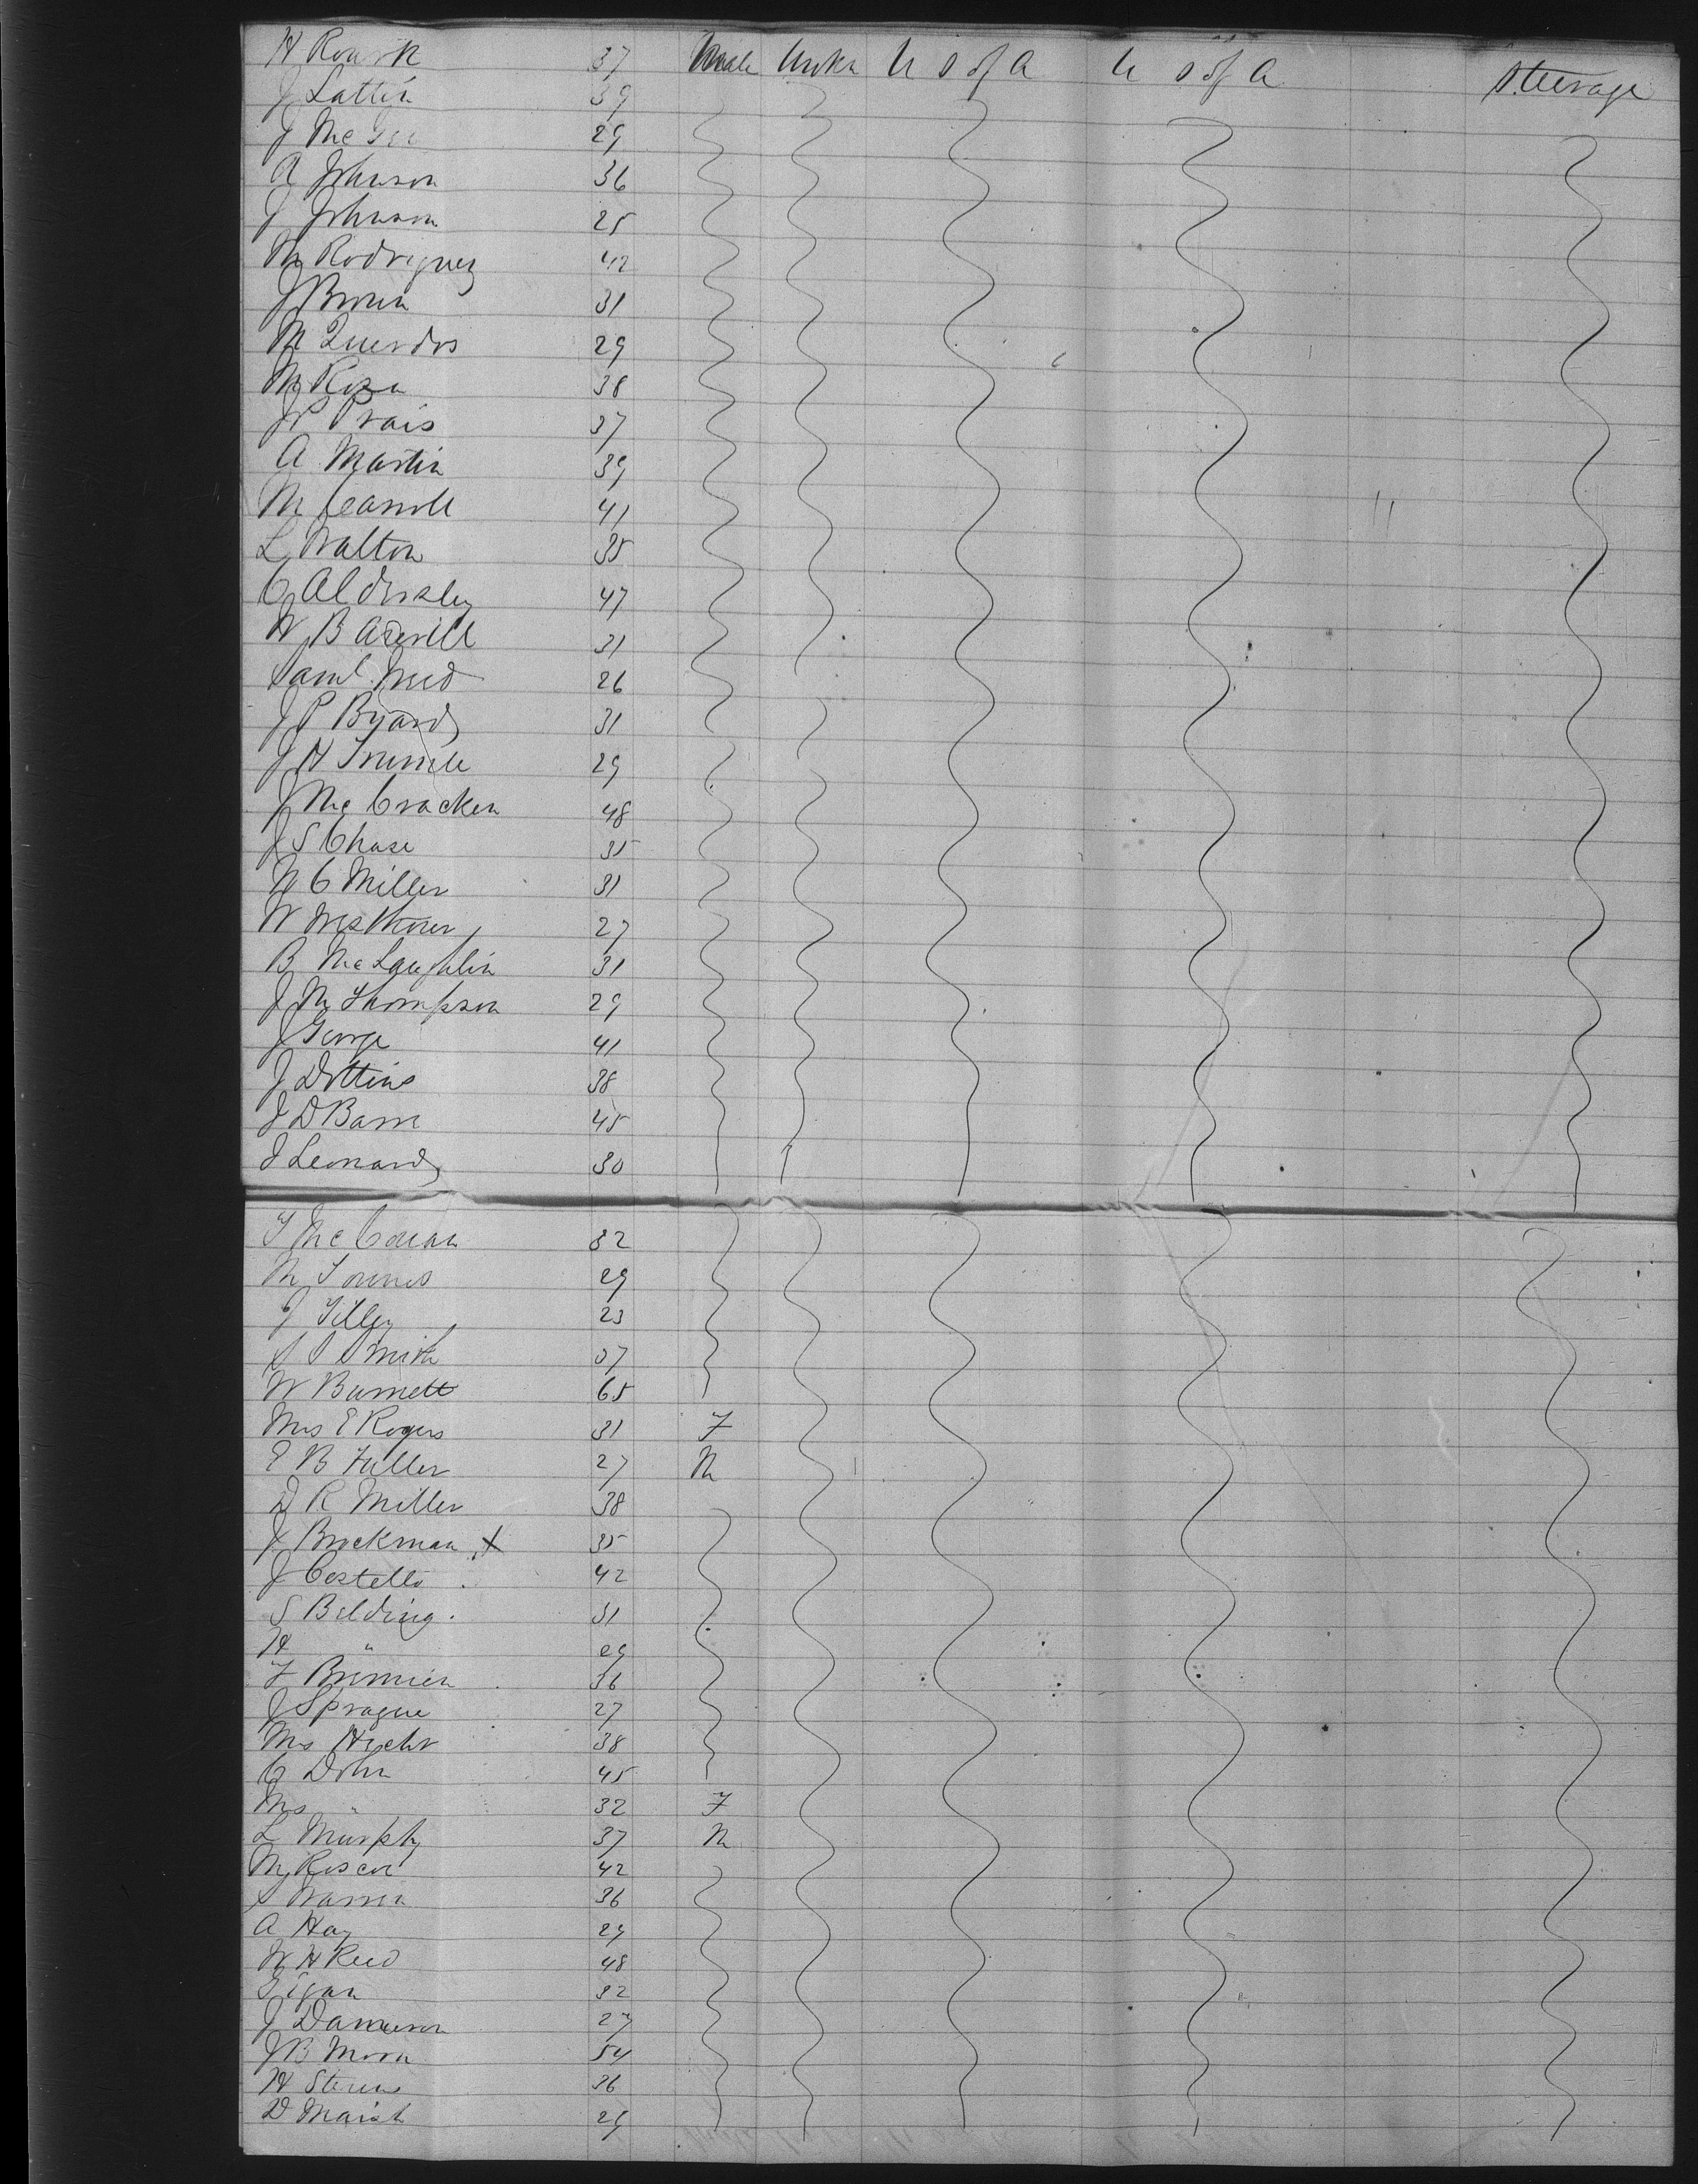 H Roark 37 Male Unkn U S of A U S of A Steerage
J Lattin 39
J Mc Gee 29
A Johnson 36
J Johnson 25
M Rodriguez 42
J Brown 31
M Querdos 29
M Roza 38
J P Prais 37
A Martin 39
M Carroll 41
L Walton 35
C Aldersley 47
W B Averill 31
Saml 26
J P Byard 31
J H Trumble 29
J Mc Cracken 48
J S Chase 35
N C Miller 31
W 27
B McLaughlin 31
J M Thompson 29
J George 41
J Dottins 38
J D Barre 45
J Leonard 30
T Mc Cowan 32
M Townes 29
J Tilley 23
S S Smith 37
W Burnett 65
Mrs E Rogers 31 F
E B Fuller 27 M
D R Miller 38
J Brockman X 35
J Costello 42
S Belding 31
H " 29
F 36
J Sprague 27
Mrs 38
C Dohn 45
Mrs " 32 F
L Murphy 37 M
M Roscoe 42
S Warren 36
A Hay 29
W H Reed 48
Egan 32
J Dameron 27
J B Moon 54
H Sterns 36
D Marsh 29